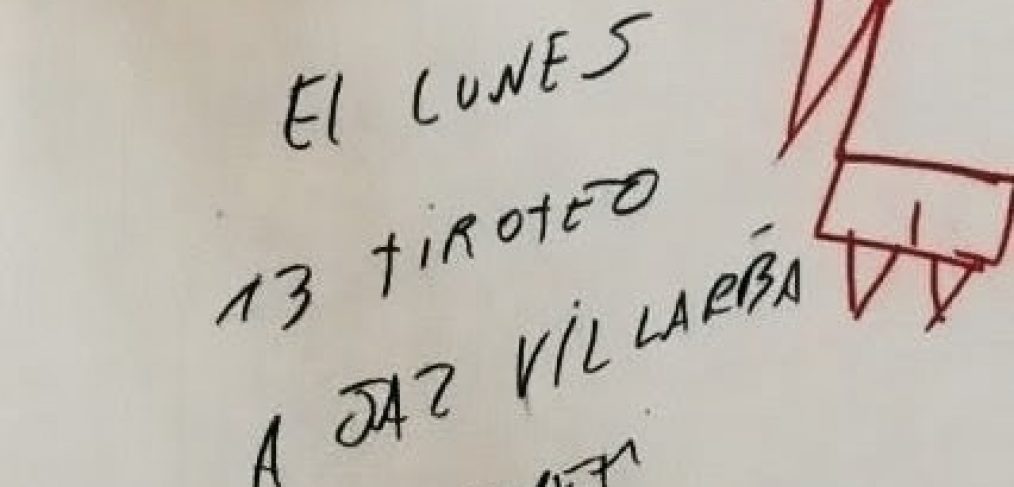 El LUNES
13 tiROtEO
A JAZ VILLARBA